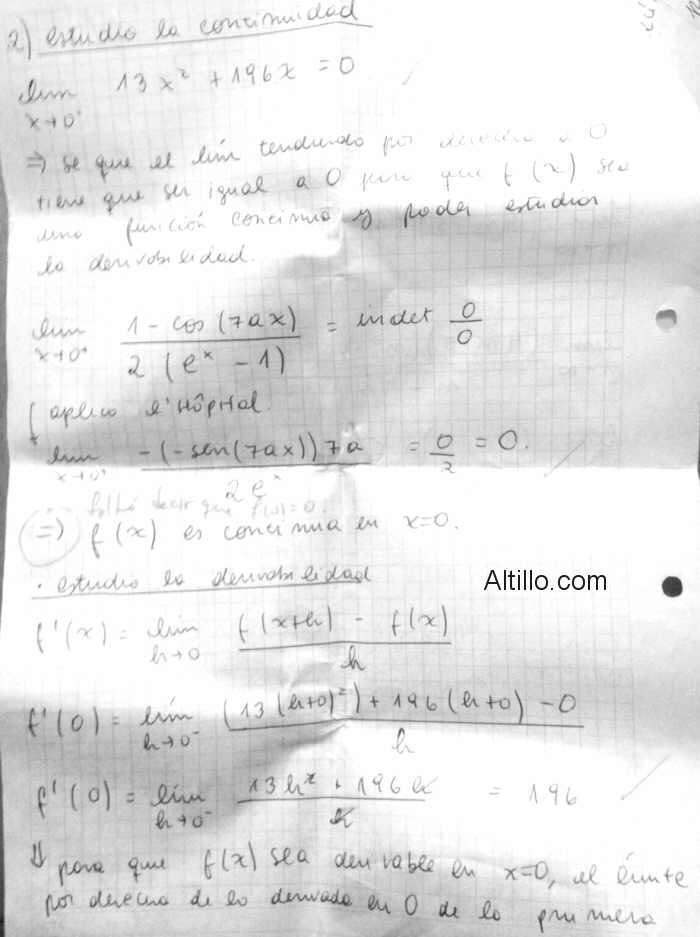 2) estudio la continuidad
lim 13x² + 196x = 0
x→0⁻
⇒ se que el lím tendiendo por derecha a 0
tiene que ser igual a 0 para que f(x) sea
una función continua y poder estudiar
la derivabilidad.
lim 1 - cos(7ax) / 2(eˣ - 1) = indet 0/0
x→0⁺
aplico L'Hôpital.
lim -(-sen(7ax))7a / 2eˣ = 0/2 = 0.
x→0⁺
faltó decir que f(0)=0.
⇒) f(x) es continua en x=0.
· estudio la derivabilidad
Altillo.com
f'(x) = lim f(x+h) - f(x) / h
h→0
f'(0) = lím (13(h+0)²) + 196(h+0) - 0 / h
h→0⁻
f'(0) = lím 13h² + 196h / h = 196
h→0⁻
⇓ para que f(x) sea derivable en x=0, el límite
por derecha de la derivada en 0 de la primera